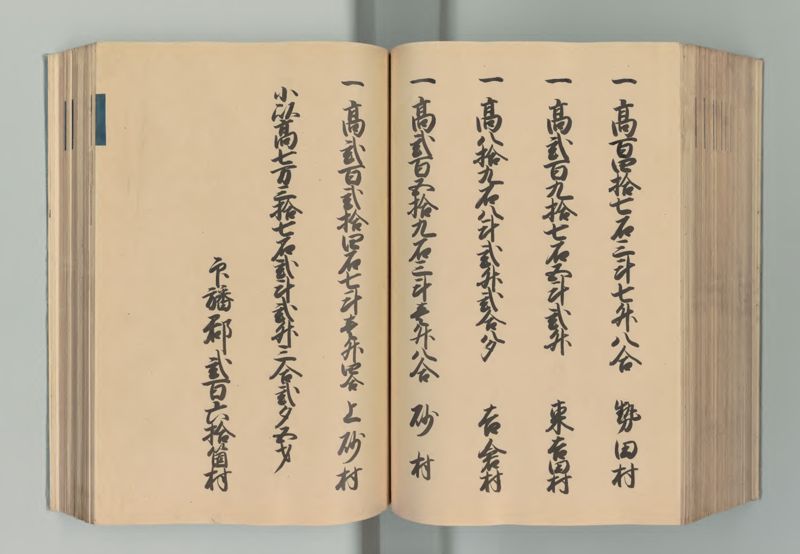 一高百四拾七石三斗七升八合 勢田村
一高弐百九拾七石五斗弐升 東吉田村
一高八拾九石八斗弐升弐合八夕 吉倉村
一高弐百五拾九石三斗壱升八合 砂村
一高弐百弐拾四石七斗壱升四合 上砂村
小以高七万三拾七石弐斗弐升三合弐夕五才
印旛郡弐百六拾箇村